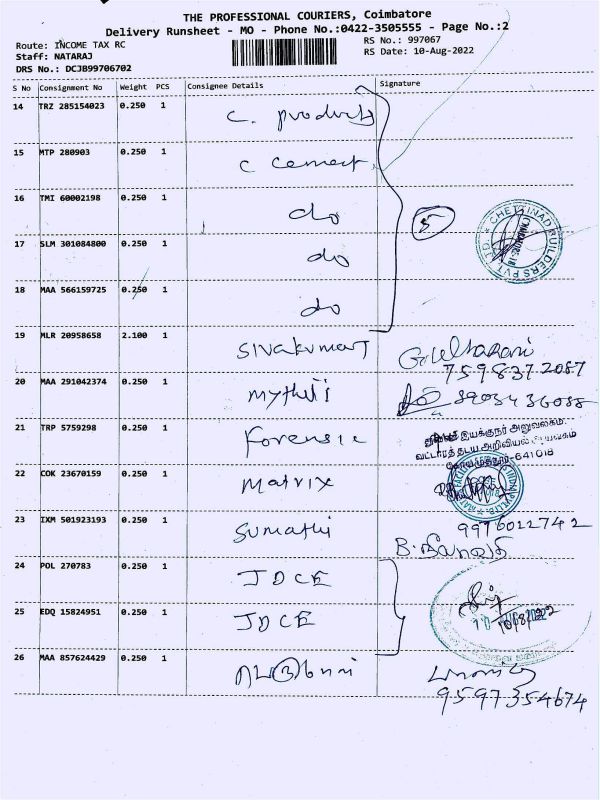 THE PROFESSIONAL COURIERS, Coimbatore
Delivery Runsheet - MO - Phone No.:0422-3505555 - Page No.:2
Route: INCOME TAX RC
RS No.: 997067
Staff: NATARAJ
RS Date: 10-Aug-2022
DRS No.: DCJB99706702
S No Consignment No Weight PCS Consignee Details Signature
14 TRZ 285154023 0.250 1 C. products
15 MTP 280903 0.250 1 C cement
16 TMI 60002198 0.250 1 do
5
CHETTINAD BUILDERS PVT. LTD.
17 SLM 301084800 0.250 1 do
18 MAA 566159725 0.250 1 do
19 MLR 20958658 2.100 1 Sivakumar
7598372087
20 MAA 291042374 0.250 1 mythili 8903436088
21 TRP 5759298 0.250 1 Forensic
இயக்குநர் அலுவலகம்
வட்டாரத் தடய அறிவியல்
641018
22 COK 23670159 0.250 1 matrix
23 IXM 501923193 0.250 1 Sumathi 9976022742
B.
24 POL 270783 0.250 1 JDCE
25 EDQ 15824951 0.250 1 JDCE
10/8/22
26 MAA 857624429 0.250 1
9597354674